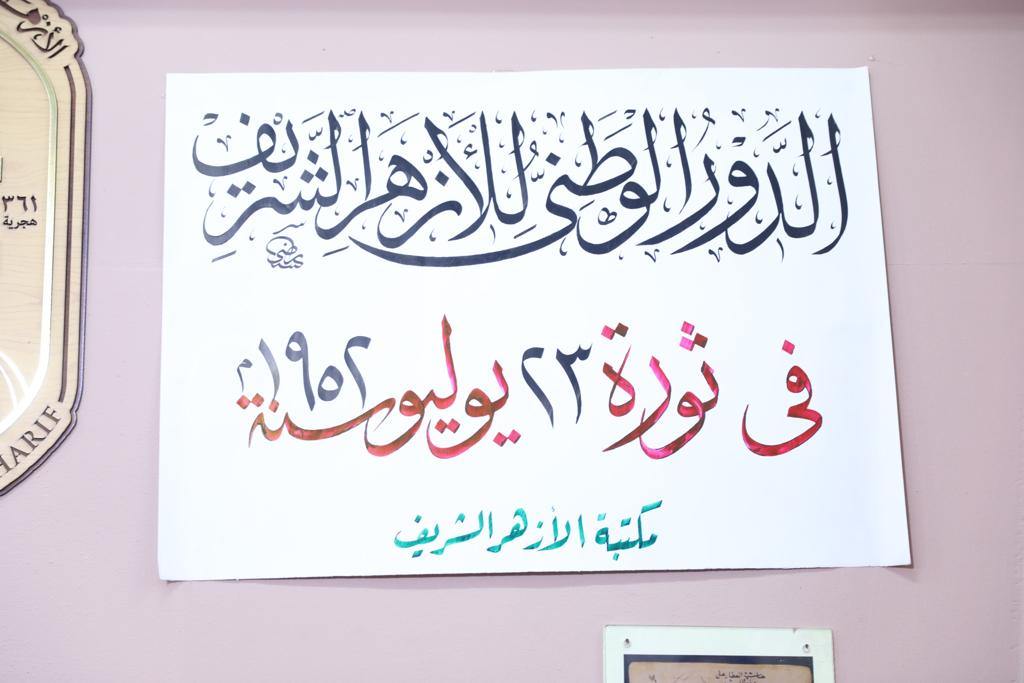 الدَّوْرُ الوَطَنِى لِلْأَزْهَرِ الشَّرِيْف
فى ثورة ٢٣ يوليو سنة ١٩٥٢م
مكتبة الأزهر الشريف
الأزهر
٣٦١
هجرية
HARIF